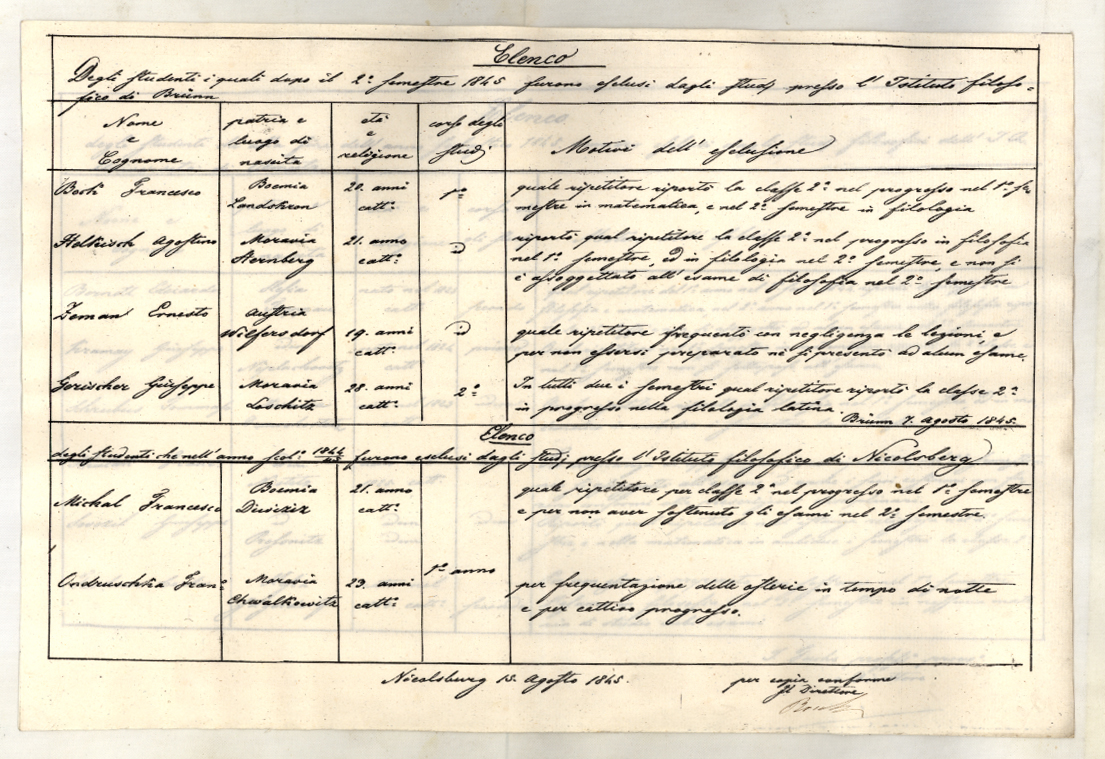 Elenco
Degli studenti i quali dopo il 2º semestre 1845 furono esclusi dagli studj presso l'Istituto filoso-
fico di Brünn
Nome e Cognome
patria e luogo di nascita
età e religione
corso degli studj
Motivi dell'esclusione
Francesco
Boemia Landskron
20. anni catt.º
1º
quale ripetitore riportò la classe 2ª nel progresso nel 1º se-
mestre in matematica, e nel 2º semestre in filologia
Agostino
Moravia Sternberg
21. anno catt.º
riportò qual ripetitore la classe 2ª nel progresso in filosofia
nel 1º semestre, ed in filologia nel 2º semestre, e non si
è assoggettato all'esame di filosofia nel 2º semestre
Zeman Ernesto
Austria Wilfersdorf
19. anni catt.º
quale ripetitore frequentò con negligenza le lezioni, e
per non essersi preparato nè si presentò ad alcun esame.
Gerischer Giuseppe
Moravia Loschitz
28. anni catt.º
2º
In tutti due i semestri qual ripetitore riportò la classe 2ª
in progresso nella filologia latina.
Brünn 7. Agosto 1845.
Elenco
degli studenti che nell'anno scol.º 1844/45 furono esclusi dagli studj presso l'Istituto filosofico di Nicolsberg
Michal Francesco
Boemia
21. anno catt.º
quale ripetitore per classe 2ª nel progresso nel 1º semestre
e per non aver sostenuto gli esami nel 2º semestre.
1º anno
Ondruschka Fran.º
Moravia Chwalkowitz
23. anni catt.º
per frequentazione delle osterie in tempo di notte
e per cattivo progresso.
Nicolsburg 15. Agosto 1845.
per copia conforme
Il Direttore